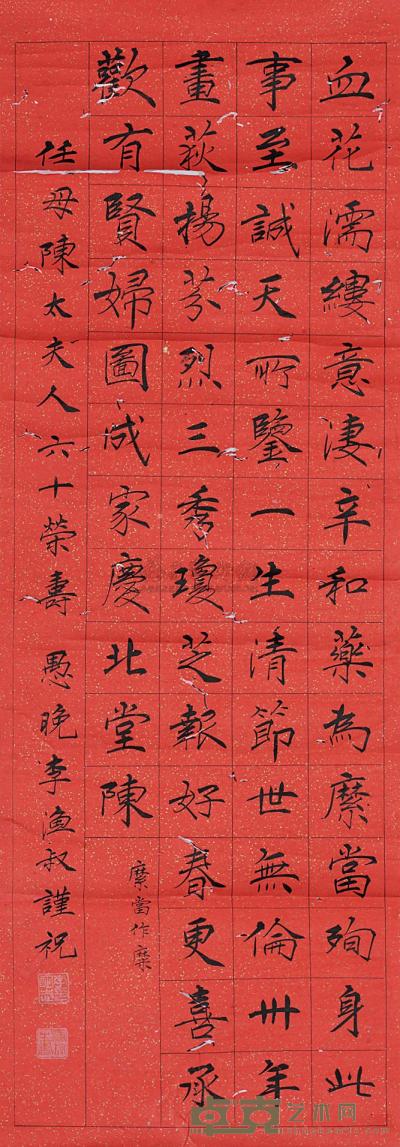 血花濡縷意淒辛和藥為縻當殉身此
事至誠天所鑒一生清節世無倫卅年
畫荻揚芬烈三秀瓊芝報好春更喜承
歡有賢婦圖成家慶北堂陳
縻當作糜
任母陳太夫人六十榮壽 愚晚李漁叔謹祝
艺术网